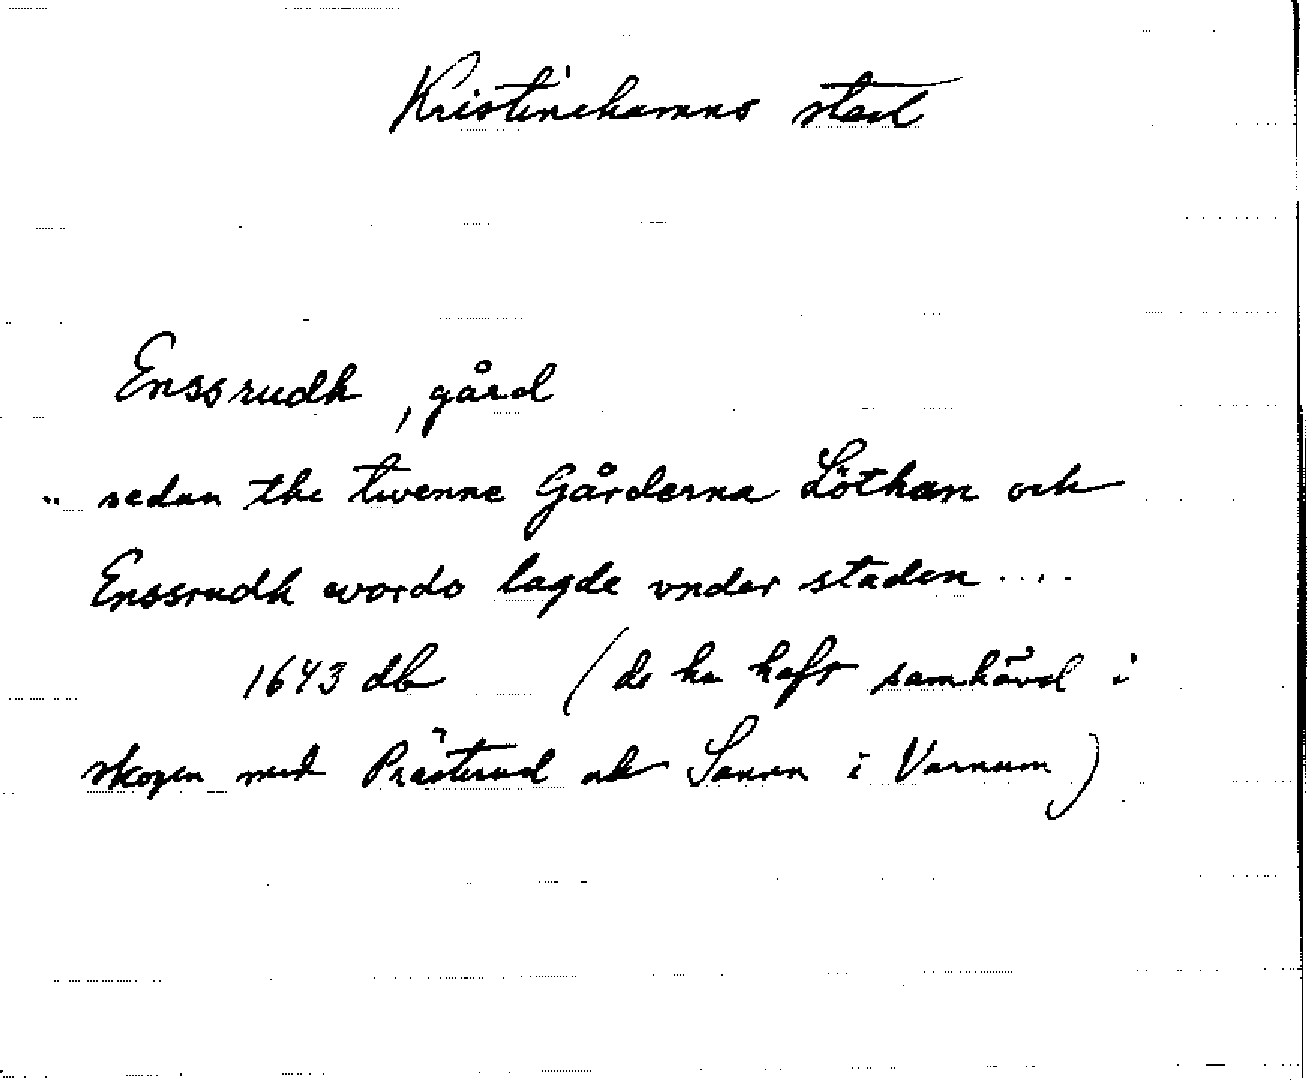 Kristinehamns stad
Enssrudh, gård
" sedan the twenne Gårderna Löthan och
Enssrudh wordo lagde vnder staden ....
1643 db (de ha haft samhävd i
skogen med Prästerud och Sanen i Varnum)